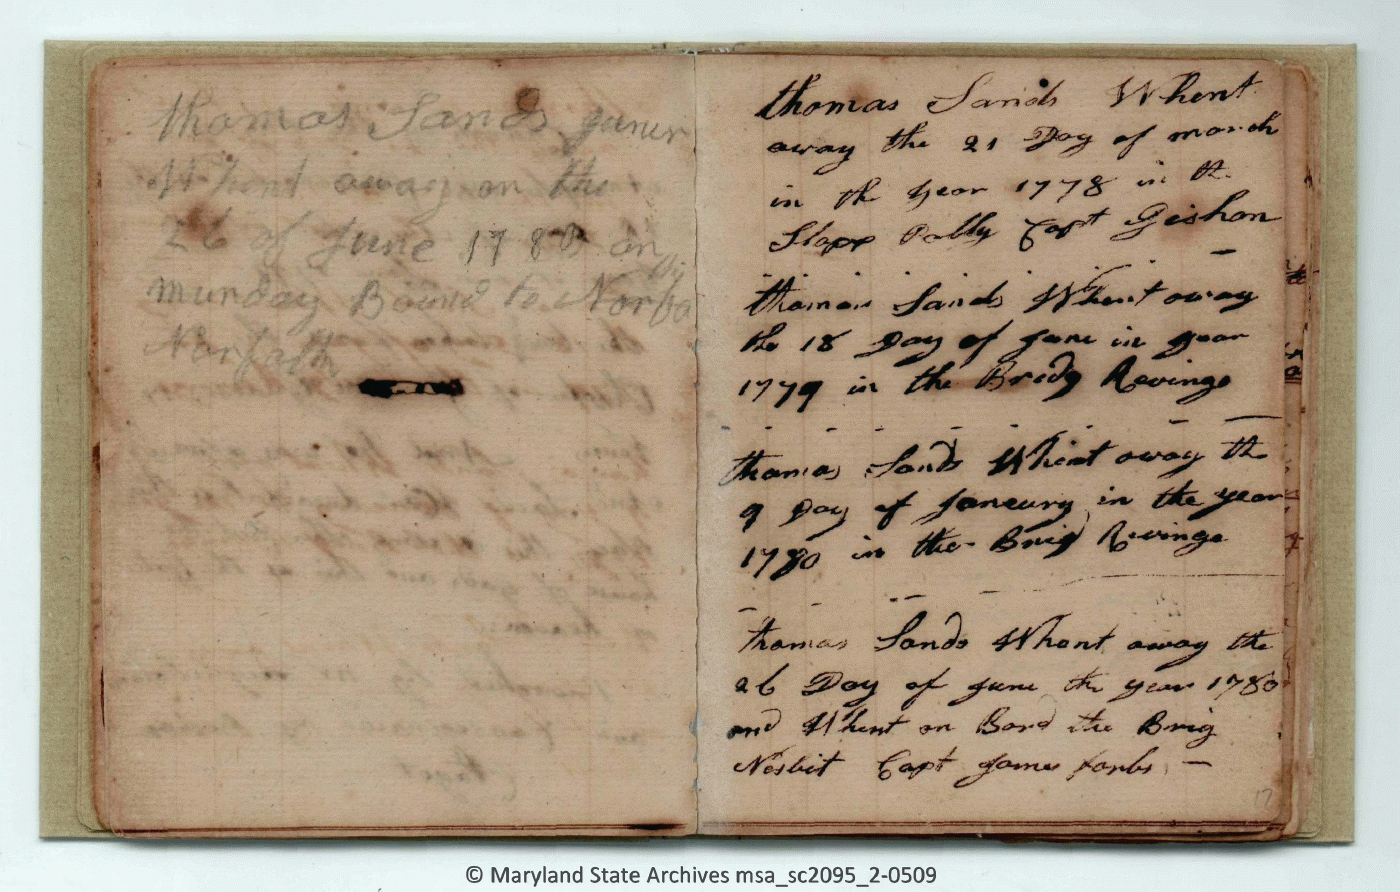 thomas Sands juner
Whent away on the
26 of June 1780 on
munday Bound to Norfo
Norfalth
thomas Sands Whent
away the 21 Day of march
in th year 1778 in th
Slopp Polly Capt Gishon
thomas Sands Whent away
the 18 Day of June in year
1779 in the Bredg Revinge
thomas Sands Whent away th
9 Day of Janeury in the year
1780 in the Brig Revinge
thomas Sands Whent away the
26 Day of June the year 1780
and Whent on Bord the Brig
Nesbit Capt James forbs
17
© Maryland State Archives msa_sc2095_2-0509